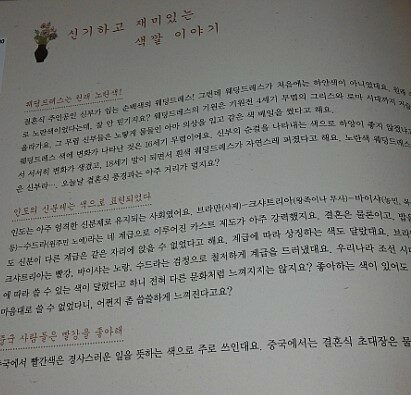 신기하고 재미있는
색깔 이야기
웨딩드레스는 원래 노란색!
결혼식 주인공인 신부가 입는 순백색의 웨딩드레스! 그런데 웨딩드레스가 처음에는 하얀색이 아니었대요. 원래
로 노란색이었다는데, 잘 안 믿기지요? 웨딩드레스의 기원은 기원전 4세기 무렵의 그리스와 로마 시대까지 거슬
올라가요. 그 무렵 신부들은 노랗게 물들인 아마 의상을 입고 같은 색 베일을 썼다고 해요.
웨딩드레스 색에 변화가 나타난 것은 16세기 무렵이에요. 신부의 순결을 나타내는 색으로 하양이 좋지 않겠냐
서 서서히 변화가 생겼고, 18세기 말이 되면서 흰색 웨딩드레스가 자연스레 퍼졌다고 해요. 노란색 웨딩드레스
은 신부라… 오늘날 결혼식 풍경과는 아주 거리가 멀지요?
인도의 신분제는 색으로 표현되었다
인도는 아주 엄격한 신분제로 유지되는 사회였어요. 브라만(사제)-크샤트리아(왕족이나 무사)-바이샤(농민,
등)-수드라(원주민 노예)라는 네 계급으로 이루어진 카스트 제도가 아주 강력했지요. 결혼은 물론이고, 밥을
도 신분이 다른 계급은 같은 자리에 앉을 수 없었다고 해요. 계급에 따라 상징하는 색도 달랐대요.
크샤트리아는 빨강, 바이샤는 노랑, 수드라는 검정으로 철저하게 계급을 드러냈대요. 우리나라 조선 시대
에 따라 쓸 수 있는 색이 달랐다고 하니 전혀 다른 문화처럼 느껴지지는 않지요? 좋아하는 색이 있어도
마음대로 쓸 수 없었다니, 어쩐지 좀 씁쓸하게 느껴진다고요?
중국 사람들은 빨강을 좋아해
중국에서 빨간색은 경사스러운 일을 뜻하는 색으로 주로 쓰인대요. 중국에서는 결혼식 초대장은 물